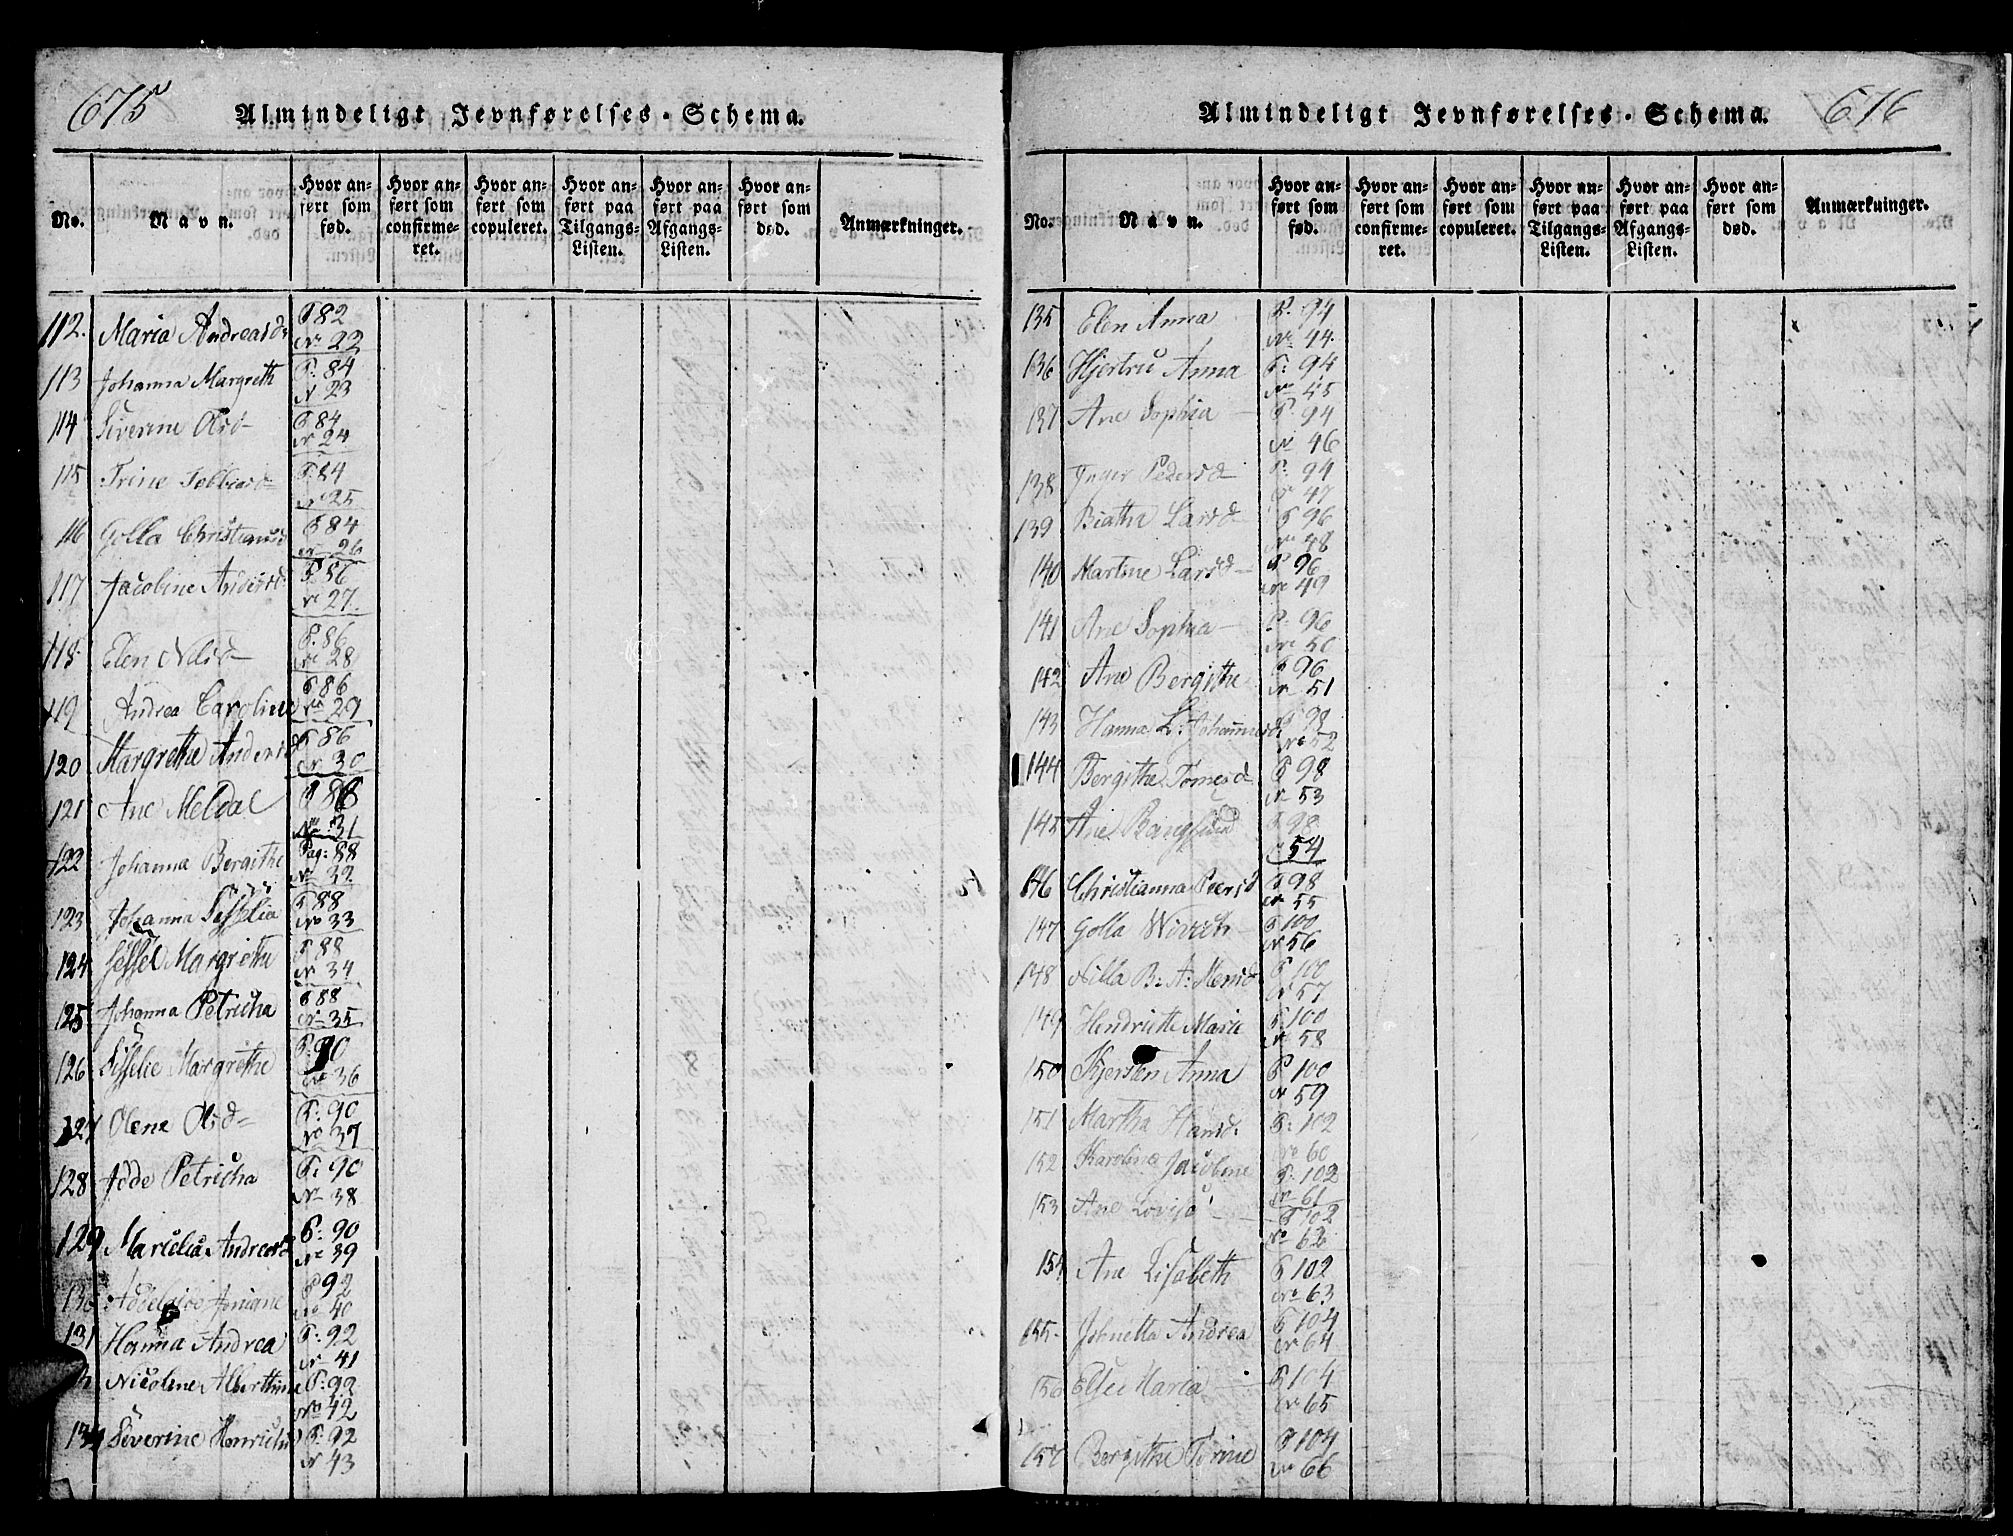 675
Almindeligt Jevnførelses-Schema.
No. Navn. Hvor anført som fød. Hvor anført som confirmeret. Hvor anført som copuleret. Hvor anført paa Tilgangs-Listen. Hvor anført paa Afgangs-Listen. Hvor anført som død. Anmærkninger.
112. Maria Andreasd P 82
No 22
113 Johanna Margreth P: 84
N 23
114 Siverine Olsd P 84
No 24
115 Trine Tobbiasd P: 84
No 25
116 Golla Christiansd P 84
No 26
117 Jacobine Andersd P. 86
No 27.
118. Elen Nilsd P. 86
No 28
119 Andrea Caroline P 86
No 29
120 Margrethe Andersd P 86
No 30
121 Ane Meldal P 86
No: 31
122 Johanna Bergithe Pag: 88
No 32
123 Johanna P 88
No 33
124 Sessel Margrethe P 88
No 34
125 Johanna Petricha P 88
No 35
126 Sisselie Margrethe P: 90
No 36
127 Olene Olsd P: 90
No 37
128 Petricha P: 90
No 38
129 Andreasd P: 90
No 39
130 P 92
No 40
131 Hanna Andrea P: 92
No 41
Nicoline Alberthine P: 92
No 42
134 Siverine P: 92
No 43
616
Almindeligt Jevnførelses-Schema.
No. Navn. Hvor anført som fød. Hvor anført som confirmeret. Hvor anført som copuleret. Hvor anført paa Tilgangs-Listen. Hvor anført paa Afgangs-Listen. Hvor anført som død. Anmærkninger.
135 Elen Anna P. 94
No 44.
136 Hjertru Anna P: 94
No 45
137 Ane Sophia P 94
No 46
138 Inger Pedersd P: 94
No 47
139 Biatha Larsd P 96
No 48
140 Martine Larsd P 96
No 49
141 Ane Sophia P: 96
No 50
142 Ane Bergithe P 96
No 51
143 Hanna L: Johannesd P 98
No 52
144 Bergithe Tomesd P 98
No 53
145 Ane Bangsund P 98
No 54
146 Christianna Peersd P 98
No 55
147 Golla P 100
No 56
148 Nilla B: A: Mensd P 100
No 57
149 Hendriette Marie P: 100
No 58
150 Kjersten Anna P 100
No 59
151 Martha Hansd: P: 102
No 60
152 Karoline Jacobine P: 102
No 61
153 Ane Lovise P 102
No 62
154 Ane Lisabeth P 102
No 63
155. Johnetta Andrea P 104
No 64
156 Else Maria P 104
No 65
157 Bergithe Torine P 104
No 66